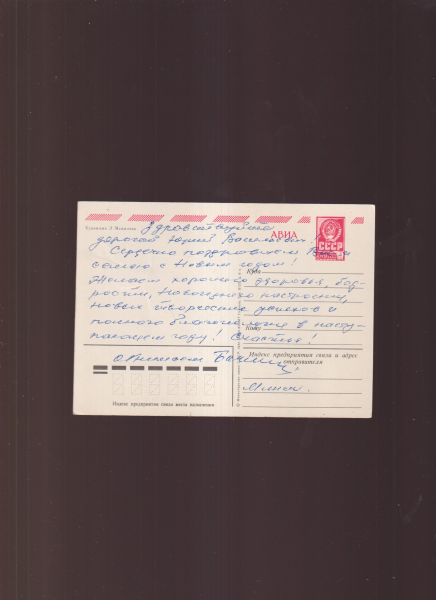 Художник
АВИА
СССР
Здравствуйте
дорогой Юрий Васильевич!
Сердечно поздравляем Вас и
семью с Новым годом!
Куда
Желаем хорошего здоровья, бод-
рости, новогоднего настроения,
новых творческих успехов и
полного благополучия в насту-
Кому
пающем году! Счастья!
С
Индекс предприятия связи и адрес
отправителя
Минск.
Индекс предприятия связи места назначения